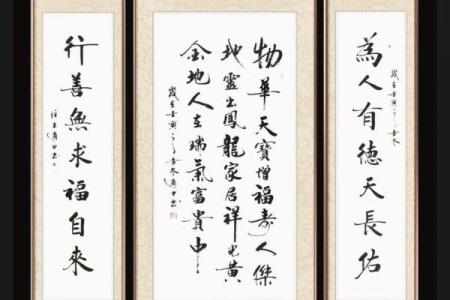 為人有德天長佑
歲在壬寅冬
物華天寶增福壽人傑
地靈出鳳龍家居祥光黃
金地人在瑞氣富貴中
歲在壬寅冬
行善無求福自來